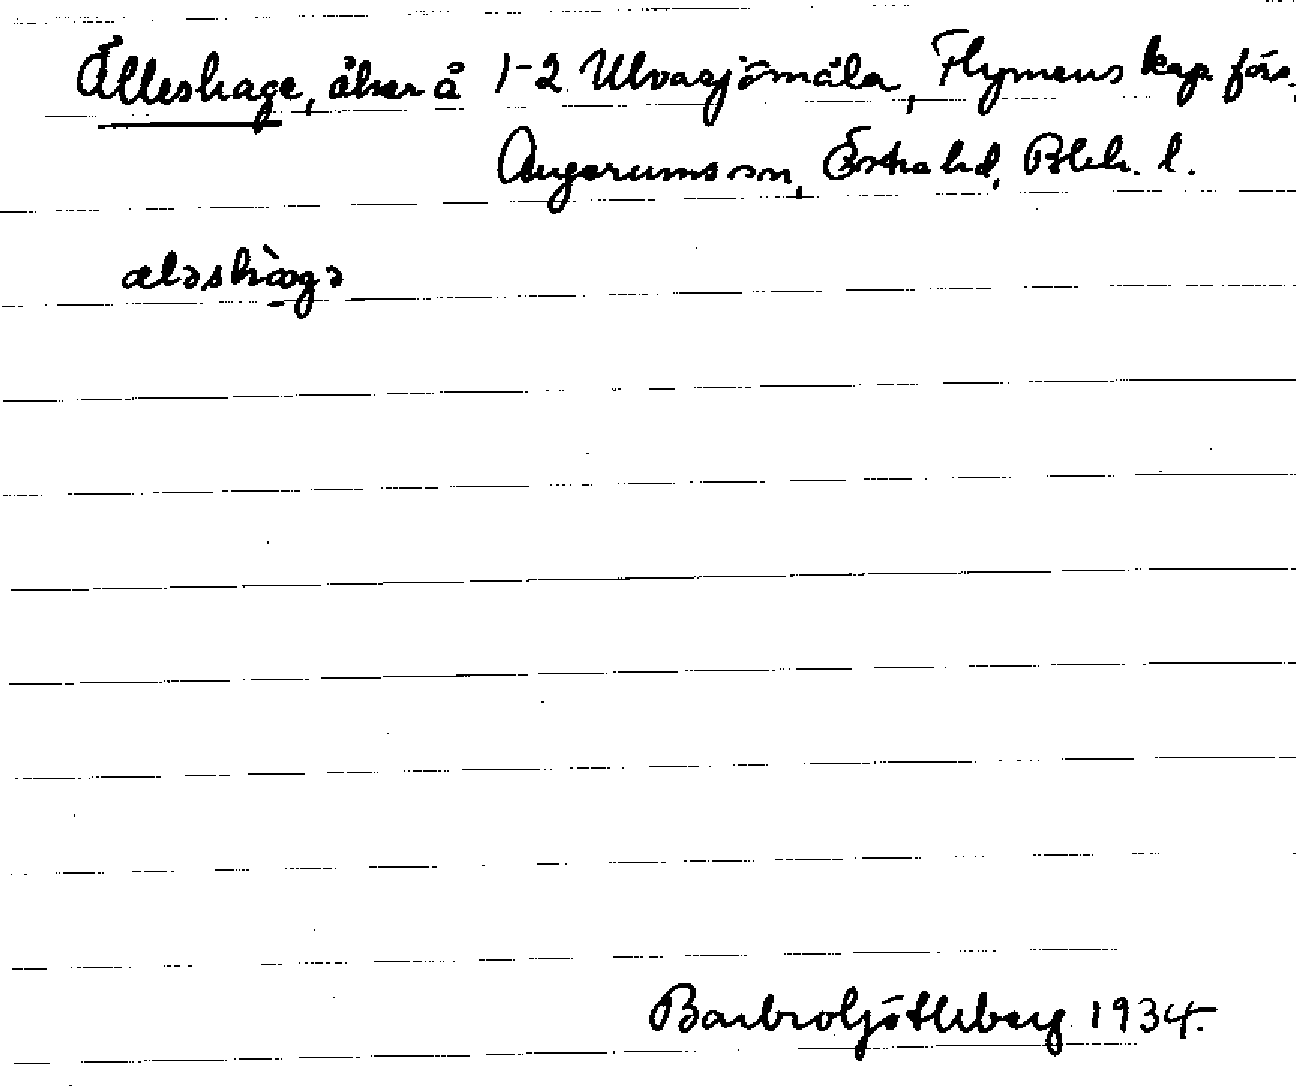 Älleshage, åker å 1-2 Ulvasjömåla, Flymens kap. förs.
Augerums sn, Östra hd, Blek. l.
æləshàgə
Barbro Götleberg 1934.